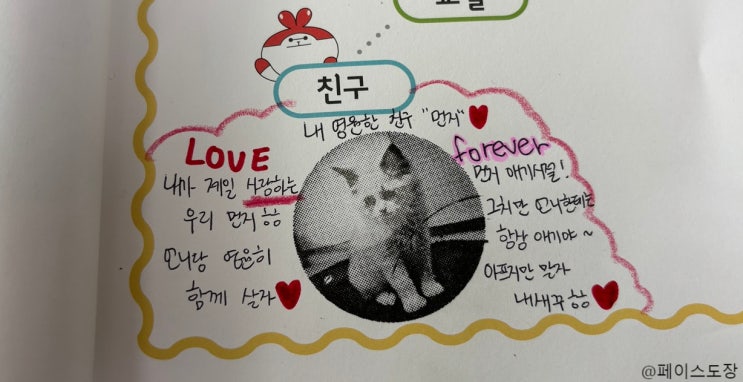 교실
친구
내 영원한 친구 "먼지"
LOVE
내가 제일 사랑하는
우리 먼지 ㅎㅎ
언니랑 영원히
함께 살자
forever
먼지 애기시절!
그치만 언니한테는
항상 애기야 ~
아프지만 말자
내새꾸 ㅎㅎ
@페이스도장